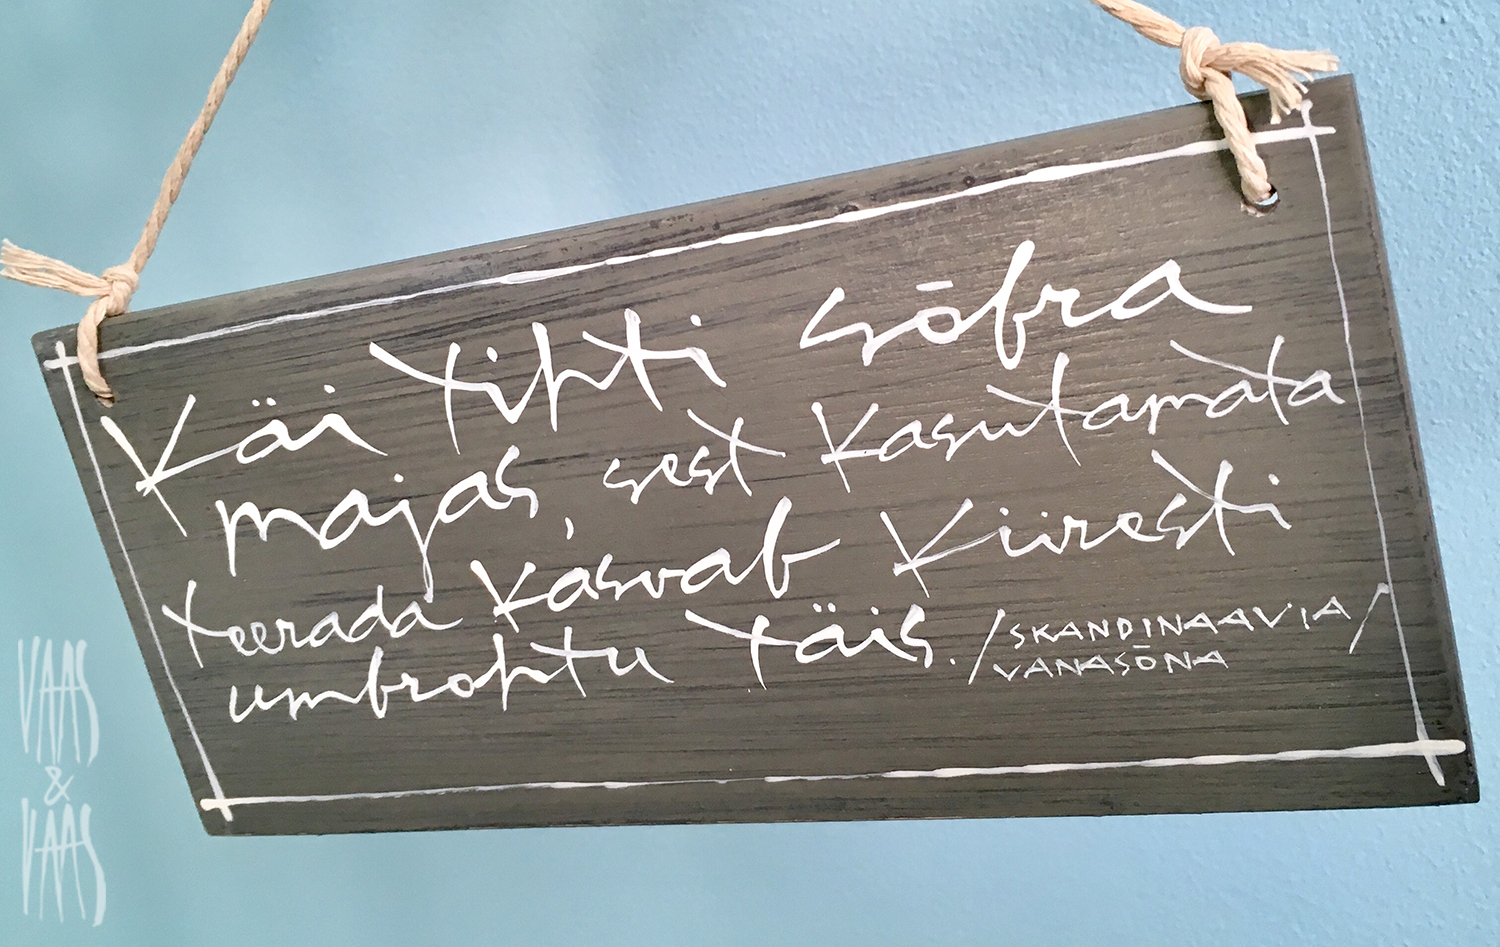 Käi tihti sõbra
majas, sest kasutamata
teerada kasvab kiiresti
umbrohtu täis. /SKANDINAAVIA
VANASÕNA/
VAAS
&
VAAS